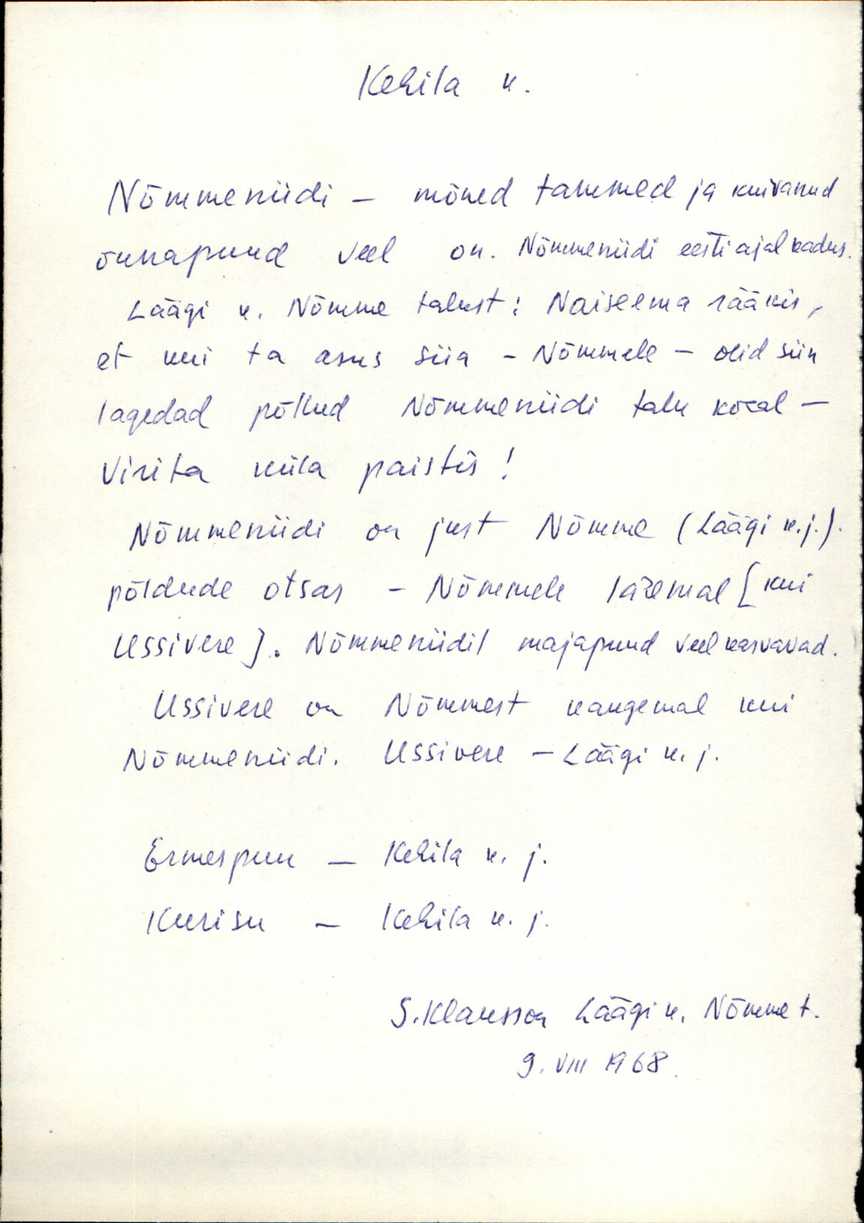 Kehila k.
Nõmmeniidi – mõned tammed ja kuivanud
õunapuud veel on. Nõmmeniidi eesti ajal kadus.
Läägi k. Nõmme talust: Naiseema rääkis,
et kui ta asus siia – Nõmmele – olid siin
lagedad põllud Nõmmeniidi talu kocal –
Virita küla paistis!
Nõmmeniidi on just Nõmme (Läägi k.j.).
põldude otsas – Nõmmele läremal [kui
Ussivere]. Nõmmeniidil majapuud veel kasvavad.
Ussivere on Nõmmest kaugemal kui
Nõmmeniidi. Ussivere – Läägi k. j.
Ermespuu – Kehila k. j.
Kurisu – Kehila k. j.
S. Klausson Läägi k. Nõmme t.
9. VIII 1968.